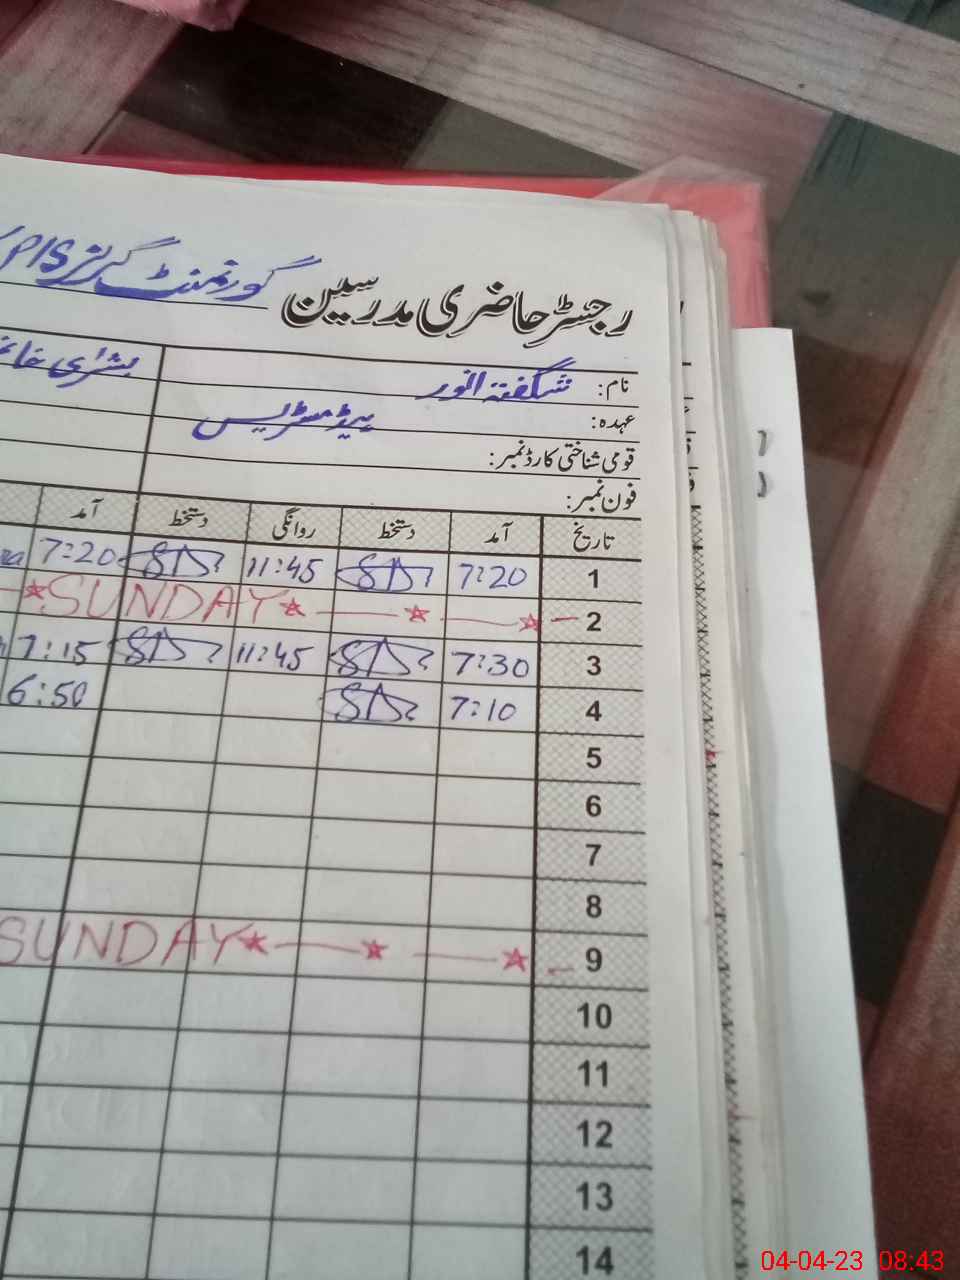 رجسٹر حاضری مدرسین گورنمنٹ گرلز P/S
نام: شگفتہ انور بشرٰی
عہدہ: ہیڈ مسٹریس
قومی شناختی کارڈ نمبر:
فون نمبر:
تاریخ آمد دستخط روانگی دستخط آمد
1 7:20 11:45 7:20
2 SUNDAY
3 7:30 11:45 7:15
4 7:10 6:50
5
6
7
8
9 SUNDAY
10
11
12
13
14
04-04-23 08:43